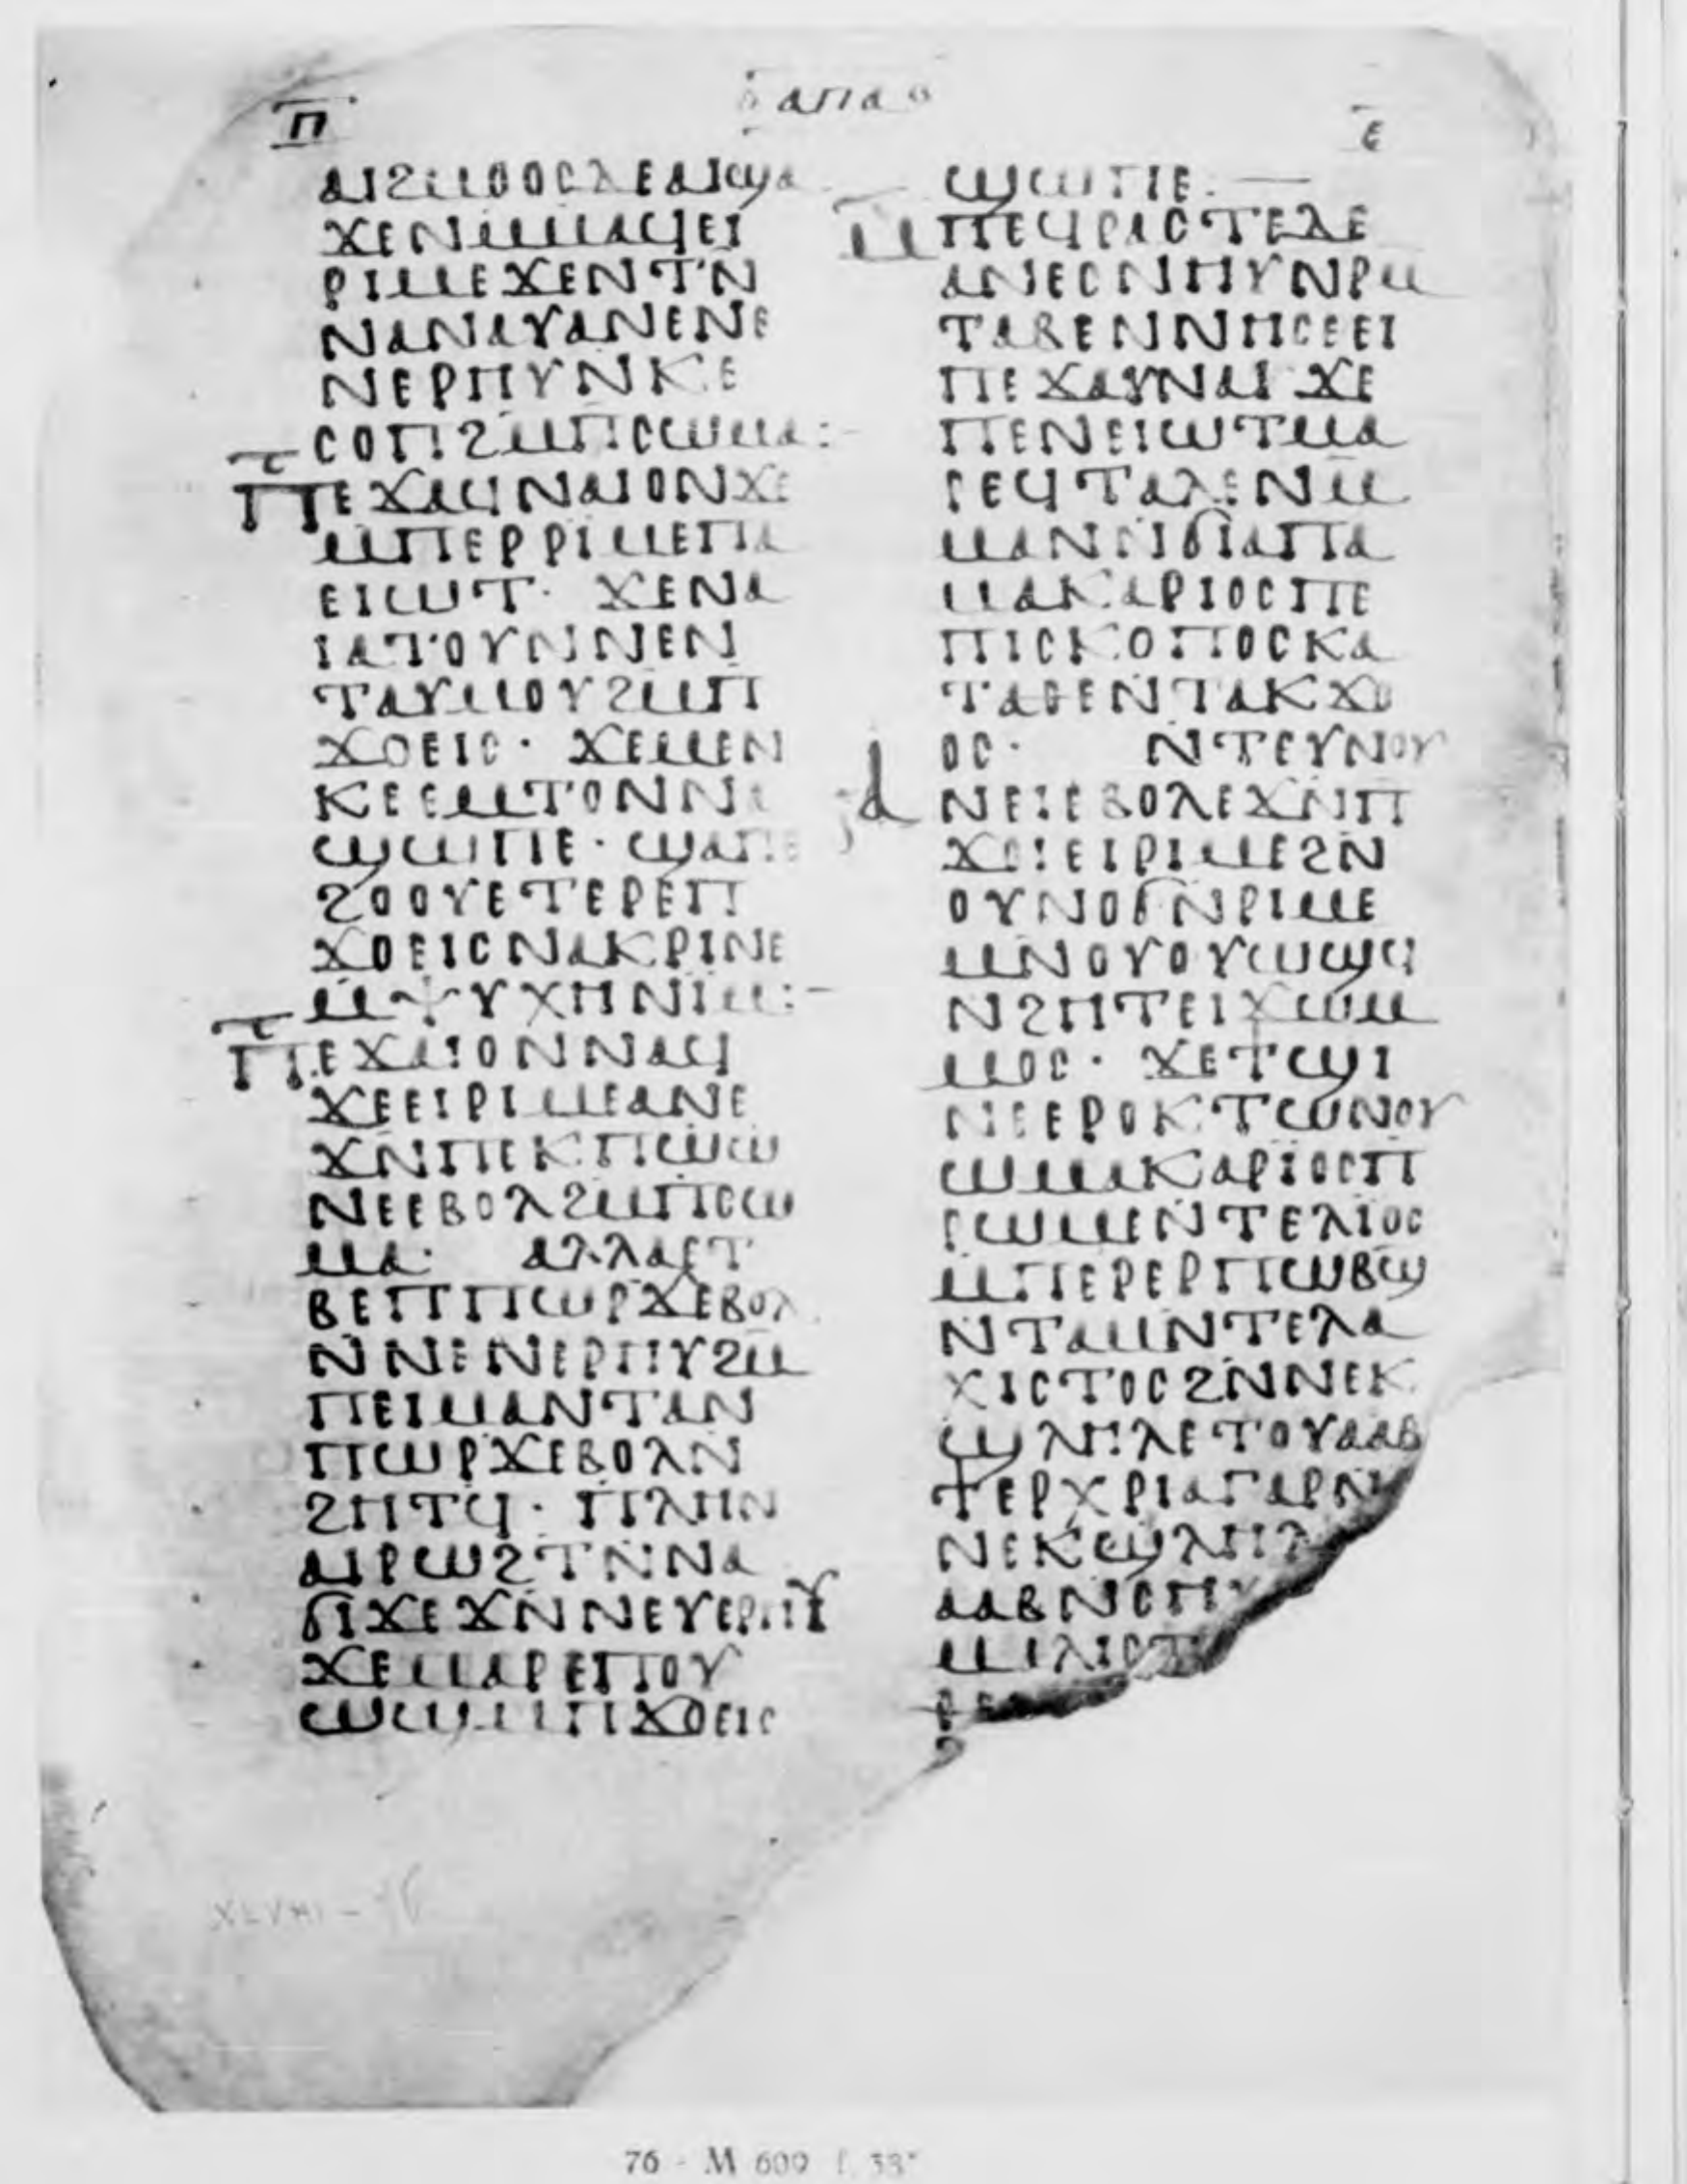 ⲡ
ⲁⲡⲁ
ⲉ
ⲁⲓϩⲙⲟⲟⲥⲇⲉⲁⲓϣⲁ
ϫⲉⲛⲙⲙⲁϥⲉⲓ
ⲣⲓⲙⲉϫⲉⲛⲧⲛ
ⲛⲁⲛⲁⲩⲁⲛⲉⲛⲉ
ⲛⲉⲣⲏⲩⲛⲕⲉ
ⲥⲟⲡϩⲙⲡⲥⲱⲙⲁ:
ⲡⲉϫⲁϥⲛⲁⲓⲟⲛϫⲉ
ⲙⲡⲉⲣⲣⲓⲙⲉⲡⲁ
ⲉⲓⲱⲧ· ϫⲉⲛⲁ
ⲓⲁⲧⲟⲩⲛⲛⲉⲛ
ⲧⲁⲩⲙⲟⲩϩⲙⲡ
ϫⲟⲉⲓⲥ· ϫⲉⲙⲉⲛ
ⲕⲉⲉⲙⲧⲟⲛⲛⲁ
ϣⲱⲡⲉ· ϣⲁⲡⲉ
ϩⲟⲟⲩⲉⲧⲉⲣⲉⲡ
ϫⲟⲉⲓⲥⲛⲁⲕⲣⲓⲛⲉ
ⲙⲯⲩⲭⲏⲛⲓⲙ:
ⲡⲉϫⲁⲓⲟⲛⲛⲁϥ
ϫⲉⲉⲓⲣⲓⲙⲉⲁⲛⲉ
ϫⲛⲡⲉⲕⲡⲱⲱ
ⲛⲉⲉⲃⲟⲗϩⲙⲡⲥⲱ
ⲙⲁ· ⲁⲗⲗⲁⲉⲧ
ⲃⲉⲡⲡⲱⲣϫⲉⲃⲟⲗ
ⲛⲛⲉⲛⲉⲣⲏⲩϩⲙ
ⲡⲉⲓⲙⲁⲛⲧⲁⲛ
ⲡⲱⲣϫⲉⲃⲟⲗⲛ
ϩⲏⲧϥ· ⲡⲗⲏⲛ
ⲁⲓⲣⲱϩⲧⲛⲛⲁ
ϭⲓϫⲉϫⲛⲛⲉⲩⲉⲣⲏⲩ
ϫⲉⲙⲁⲣⲉⲡⲟⲩ
ⲱϣⲙⲡϫⲟⲉⲓⲥ
ϣⲱⲡⲉ.
ⲙⲡⲉϥⲣⲁⲥⲧⲉⲇⲉ
ⲁⲛⲉⲥⲛⲏⲩⲛⲣⲙ
ⲧⲁⲃⲉⲛⲛⲏⲥⲉⲉⲓ
ⲡⲉϫⲁⲩⲛⲁⲓ ϫⲉ
ⲡⲉⲛⲉⲓⲱⲧⲙⲁ
ⲣⲉϥⲧⲁⲗⲉⲛⲙ
ⲙⲁⲛⲛϭⲓⲁⲡⲁ
ⲙⲁⲕⲁⲣⲓⲟⲥⲡⲉ
ⲡⲓⲥⲕⲟⲡⲟⲥⲕⲁ
ⲧⲁⲑⲉⲛⲧⲁⲕϫⲟ
ⲟⲥ· ⲛⲧⲉⲩⲛⲟⲩ
ⲁⲛⲉⲓⲉⲃⲟⲗⲉϫⲙⲡ
ϫⲟⲓⲉⲓⲣⲓⲙⲉϩⲛ
ⲟⲩⲛⲟϭⲛⲣⲓⲙⲉ
ⲙⲛⲟⲩⲟⲩⲱϣϥ
ⲛϩⲏⲧⲉⲓϫⲱⲙ
ⲙⲟⲥ· ϫⲉⲧϣⲓ
ⲛⲉⲉⲣⲟⲕⲧⲱⲛⲟⲩ
ⲱⲙⲁⲕⲁⲣⲓⲟⲥⲡ
ⲣⲱⲙⲉⲛⲧⲉⲗⲓⲟⲥ
ⲙⲡⲉⲣⲉⲣⲡⲱⲃϣ
ⲛⲧⲁⲙⲛⲧⲉⲗⲁ
ⲭⲓⲥⲧⲟⲥϩⲛⲛⲉⲕ
ϣⲗⲏⲗⲉⲧⲟⲩⲁⲁⲃ
ϯⲉⲣⲭⲣⲓⲁⲅⲁⲣⲛ
ⲛⲉⲕϣⲗⲏⲗ
ⲁⲁⲃⲛⲥⲏⲩ
ⲙⲁⲗⲓⲥⲧ
76 - M 609 f. 38ᵛ